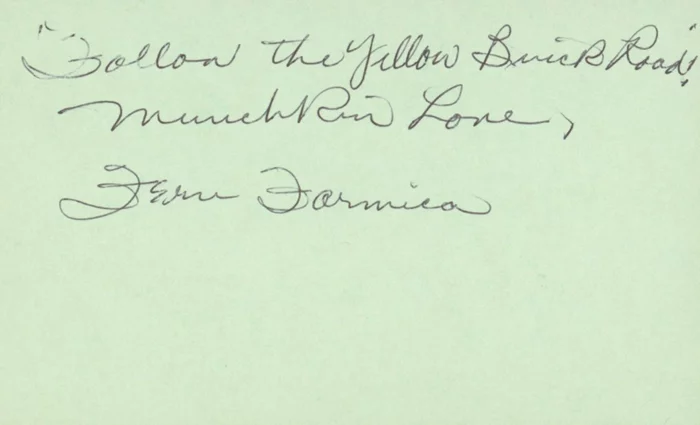 "Follow the Yellow Brick Road"!
Munchkin Love,
Fern Formica